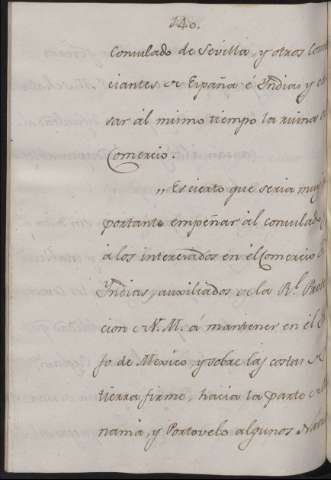 140.
Consulado de Sevilla, y otros Com
ciantes de España é Indias y e
sar ál mismo tiempo la ruina d
Comercio.
,, Es cierto que seria muy
portante empeñar ál consulad
á los interesados en él Comercio
Indias, auxiliados de la Rl. Prote
cion de V. M. á mantener en él
fo de Mexico, y sobre las costas de
tierra firme, hacia la parte de
nama, y Portovelo algunos Návi